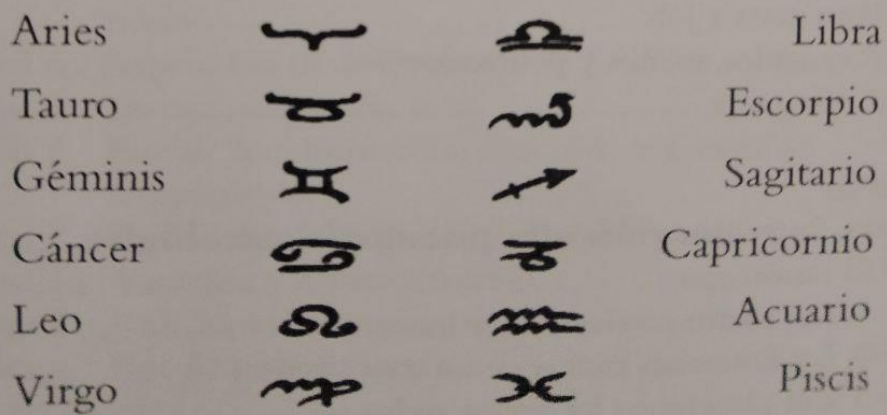 Aries ♈ ♎ Libra
Tauro ♉ ♏ Escorpio
Géminis ♊ ♐ Sagitario
Cáncer ♋ ♑ Capricornio
Leo ♌ ♒ Acuario
Virgo ♍ ♓ Piscis